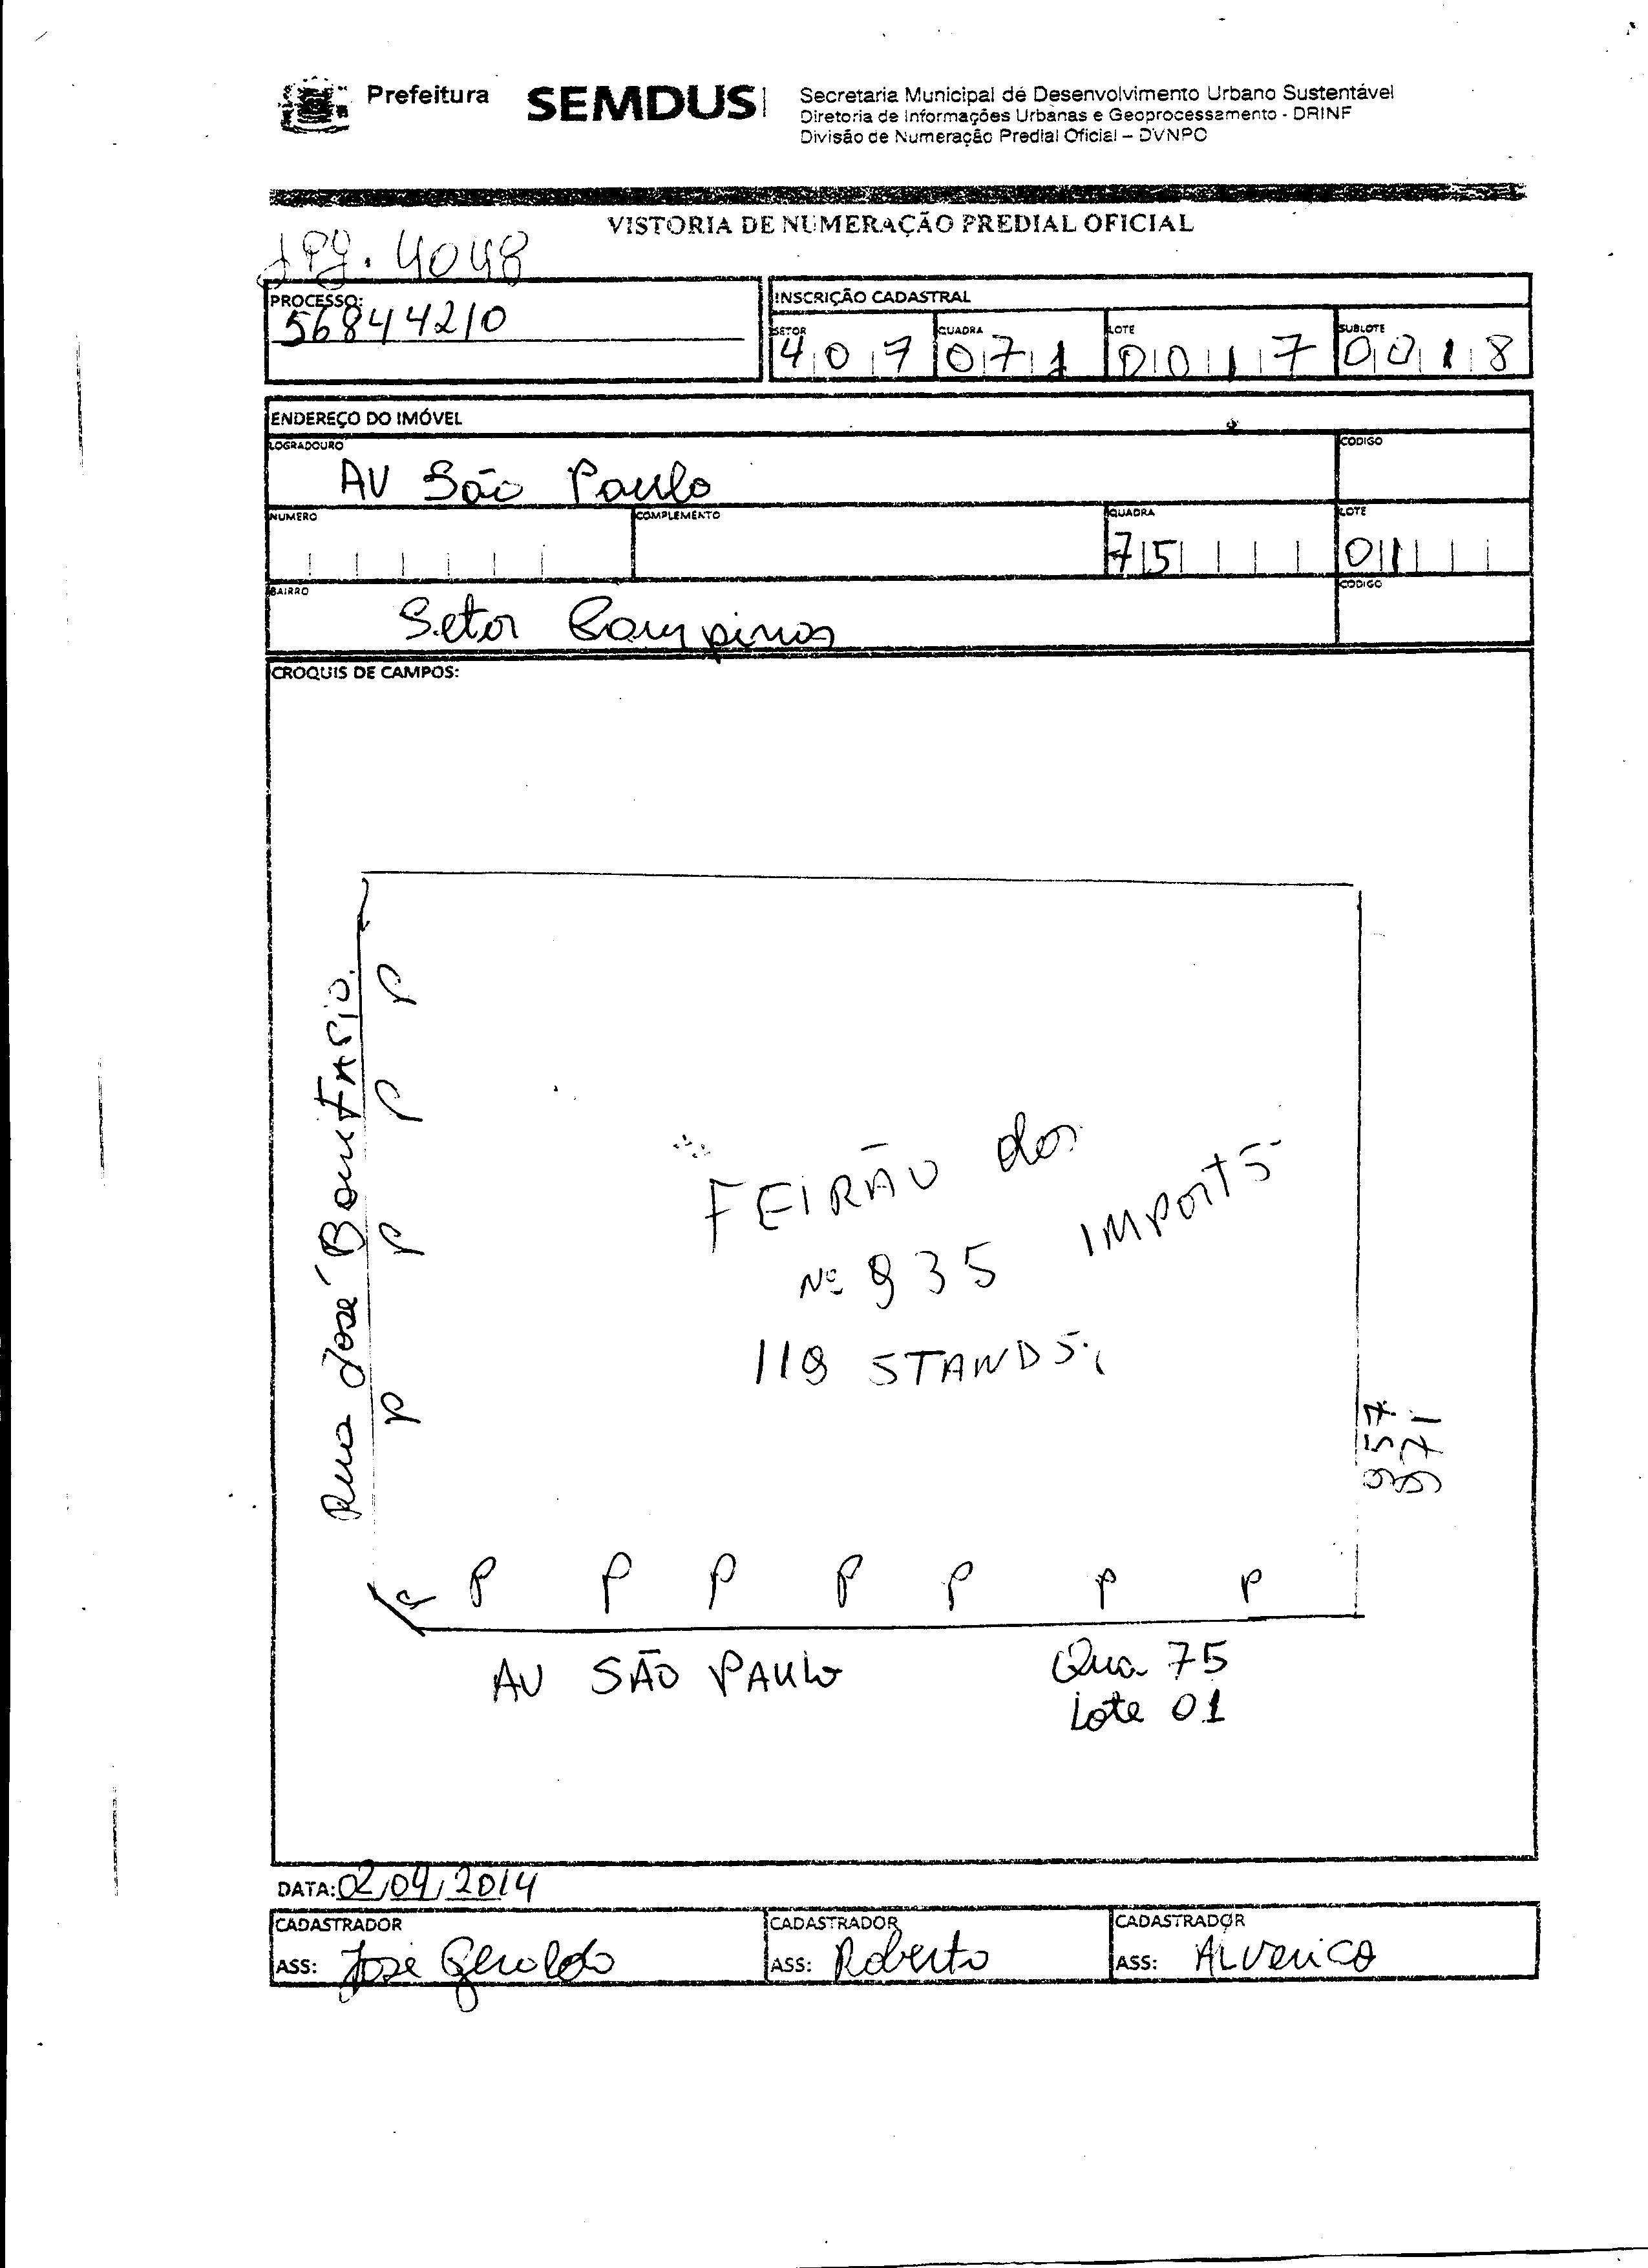 Prefeitura
SEMDUS
Secretaria Municipal de Desenvolvimento Urbano Sustentável
Diretoria de Informações Urbanas e Geoprocessamento - DRINF
Divisão de Numeração Predial Oficial – DVNPO
VISTORIA DE NUMERAÇÃO PREDIAL OFICIAL
JPG. 4048
PROCESSO:
56844210
INSCRIÇÃO CADASTRAL
SETOR QUADRA LOTE SUBLOTE
407 071 0017 0018
ENDEREÇO DO IMÓVEL
LOGRADOURO CODIGO
AV São Paulo
NUMERO COMPLEMENTO QUADRA LOTE
75 01
BAIRRO CODIGO
Setor Campinas
CROQUIS DE CAMPOS:
Rua José Bonifasio.
P P P P
FEIRÃO dos
IMPORTS
Nº 935
119 STANDS
957
971
P P P P P P P P
AV SÃO PAULO
Qua 75
Lote 01
DATA: 02/09/2014
CADASTRADOR CADASTRADOR CADASTRADOR
ASS: José Geraldo ASS: Roberto ASS: ALVERICO